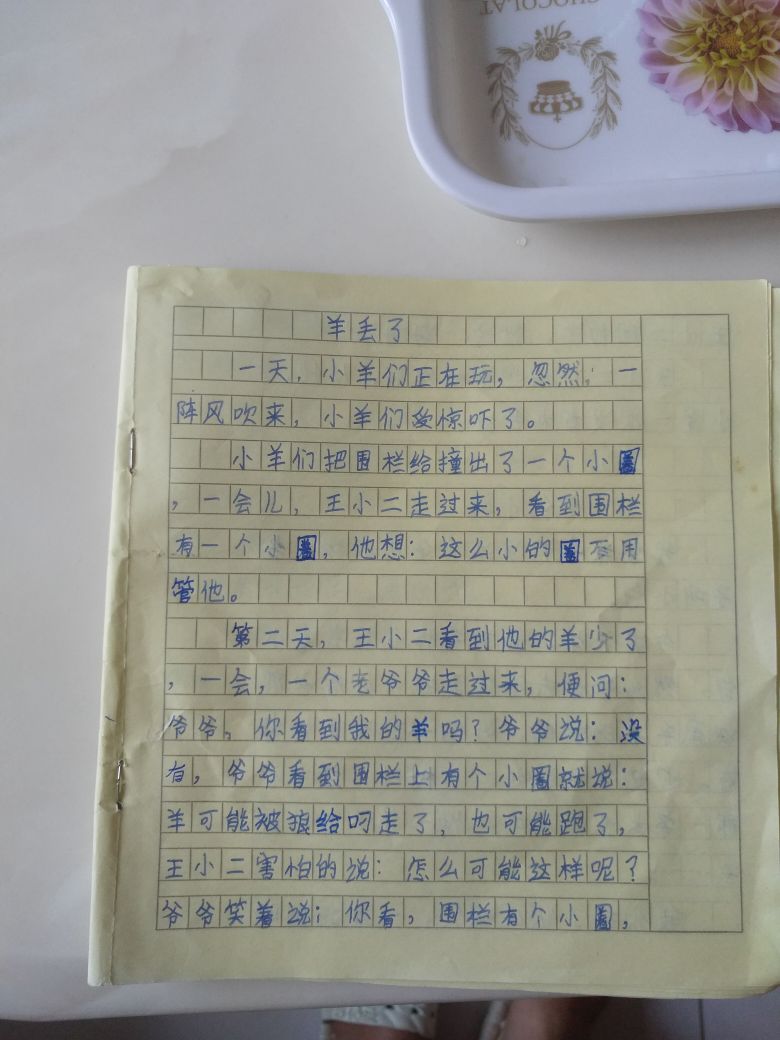 CHOCOLAT
羊丢了
一天，小羊们正在玩，忽然；一
阵风吹来，小羊们受惊吓了。
小羊们把围栏给撞出了一个小圈
，一会儿，王小二走过来，看到围栏
有一个小圈，他想：这么小的圈不用
管他。
第二天，王小二看到他的羊少了
，一会，一个老爷爷走过来，便问：
爷爷，你看到我的羊吗？爷爷说：没
有，爷爷看到围栏上有个小圈就说：
羊可能被狼给叼走了，也可能跑了，
王小二害怕的说：怎么可能这样呢？
爷爷笑着说：你看，围栏有个小圈，